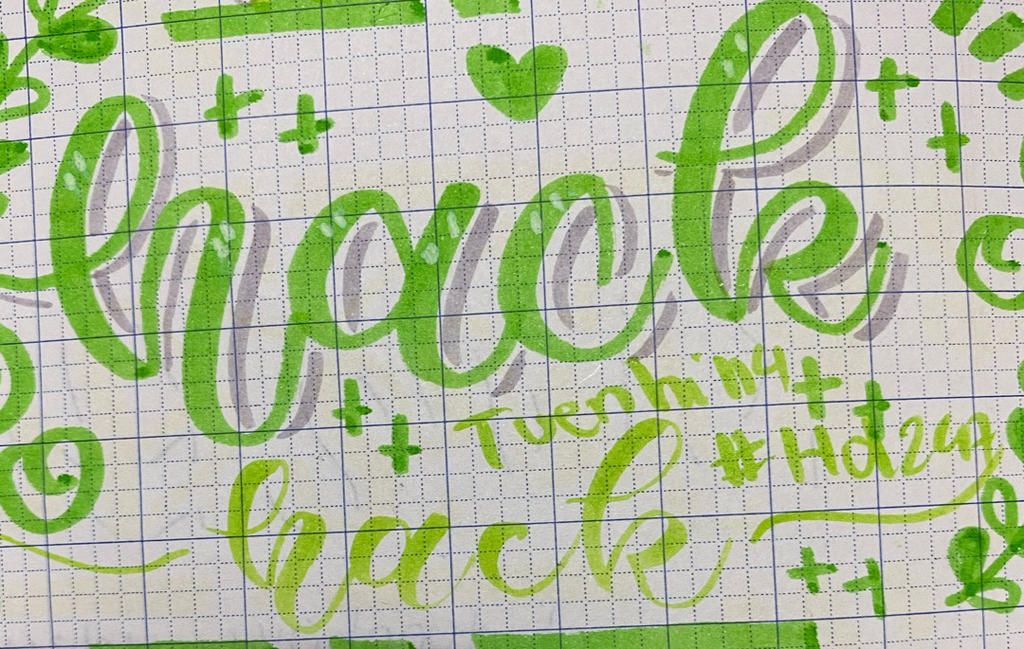 hack
Tuenhi ny
#Hd2cy
hack